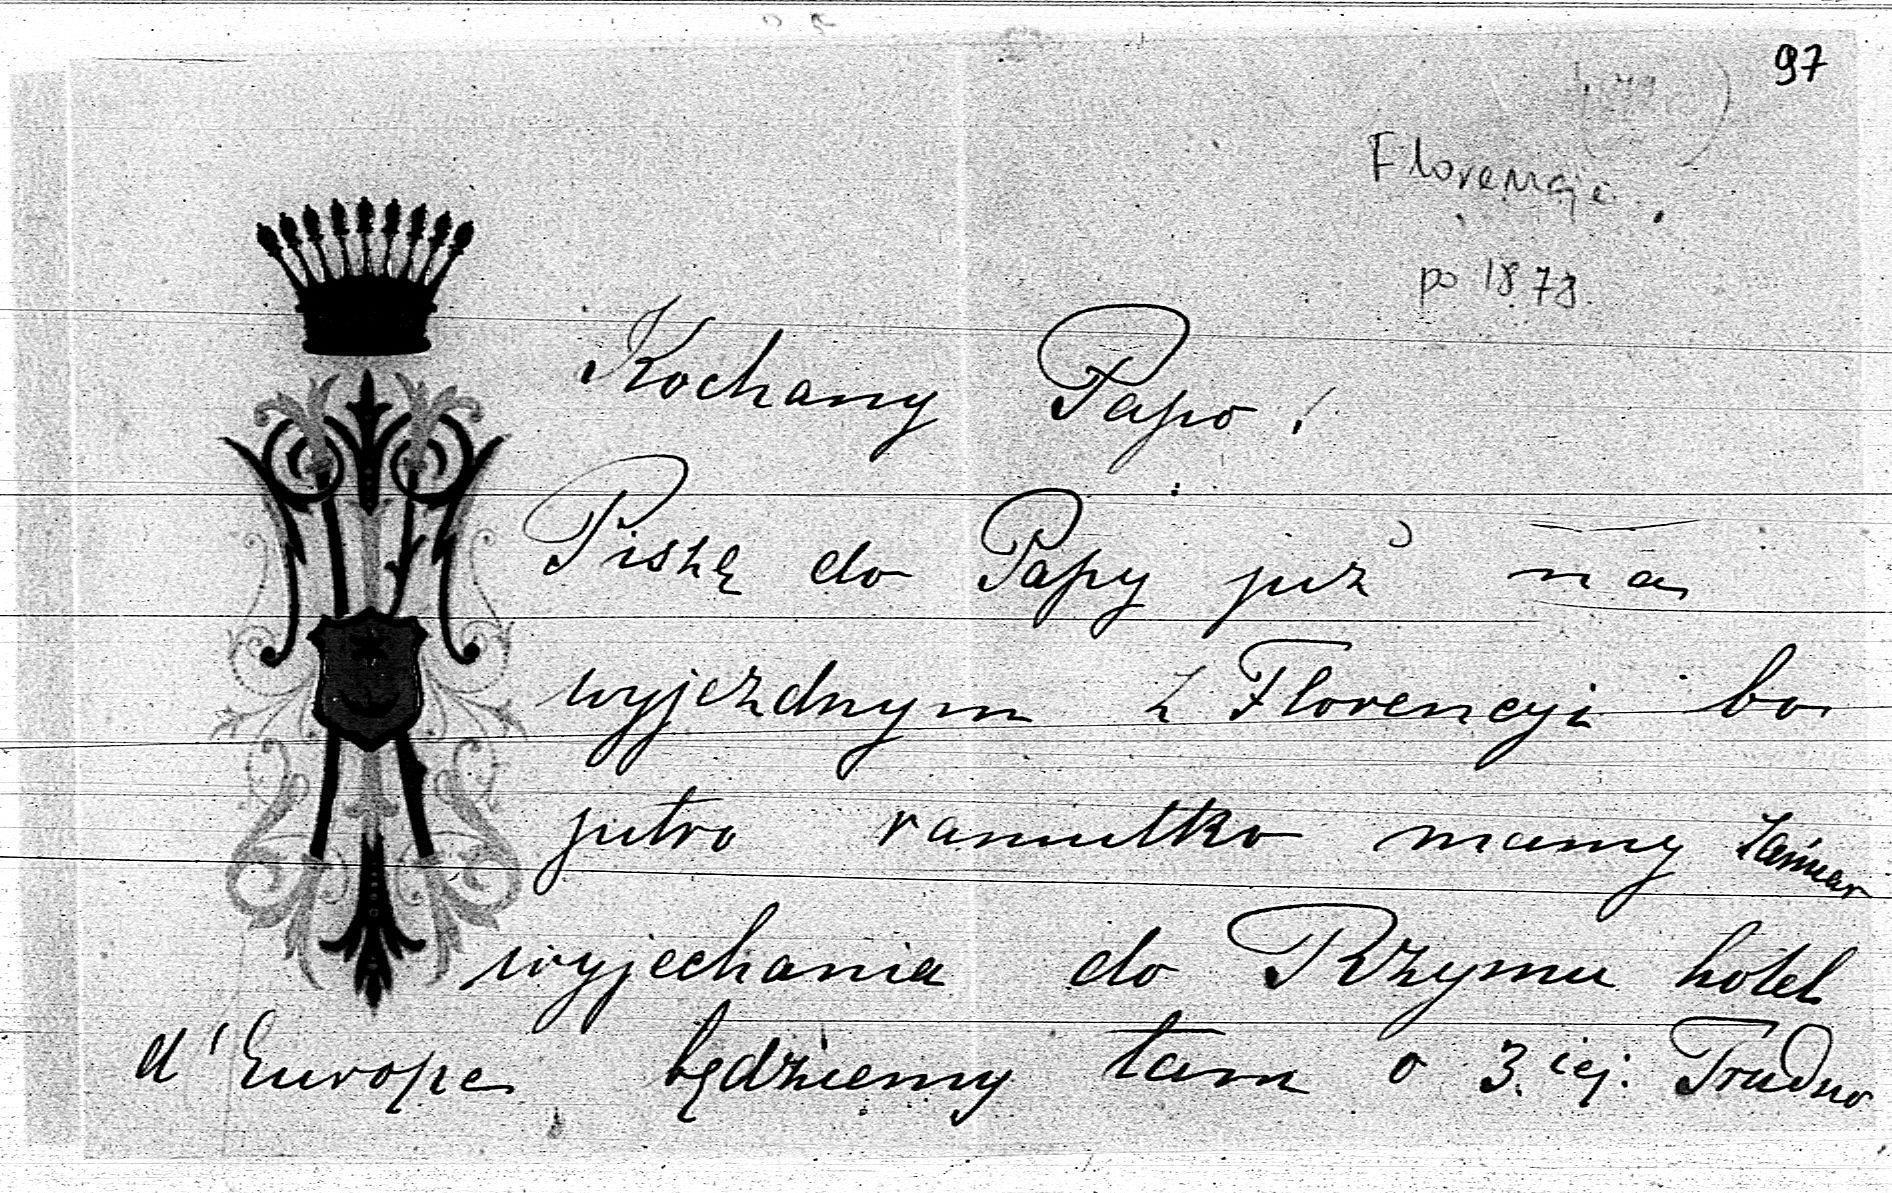 97
Florencja.
po 1878
Kochany Papo!
Piszę do Papy już na
wyjezdnym z Florencyi bo
jutro raniutko mamy zamiar
wyjechania do Rzymu hotel
d'Europe będziemy tam o 3.iej. Trudno